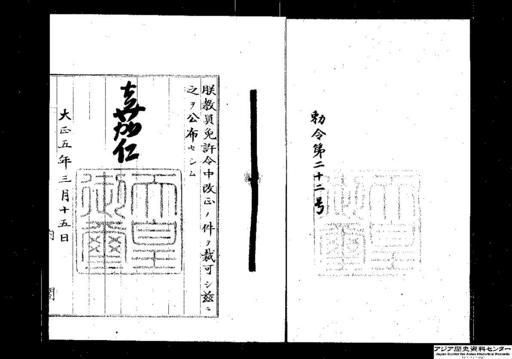 勅令第二十二号
朕教員免許令中改正ノ件ヲ裁可シ茲ニ
之ヲ公布セシム
嘉仁
天皇御璽
大正五年三月十五日
内閣
アジア歴史資料センター
Japan Center for Asian Historical Records